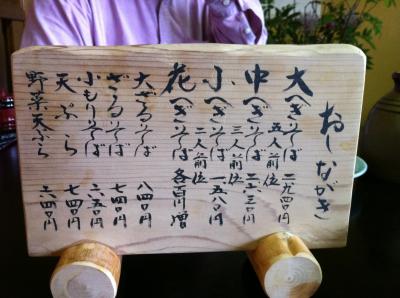 おしながき
大へぎそば 二九四〇円
五人前位
中へぎそば 二二三〇円
三人前位
小へぎそば 一五八〇円
二人前位
花へぎそば 各百円増
大ざるそば 八四〇円
ざるそば 七四〇円
小もりそば 六五〇円
天ぷら 七四〇円
野菜天ぷら 六四〇円